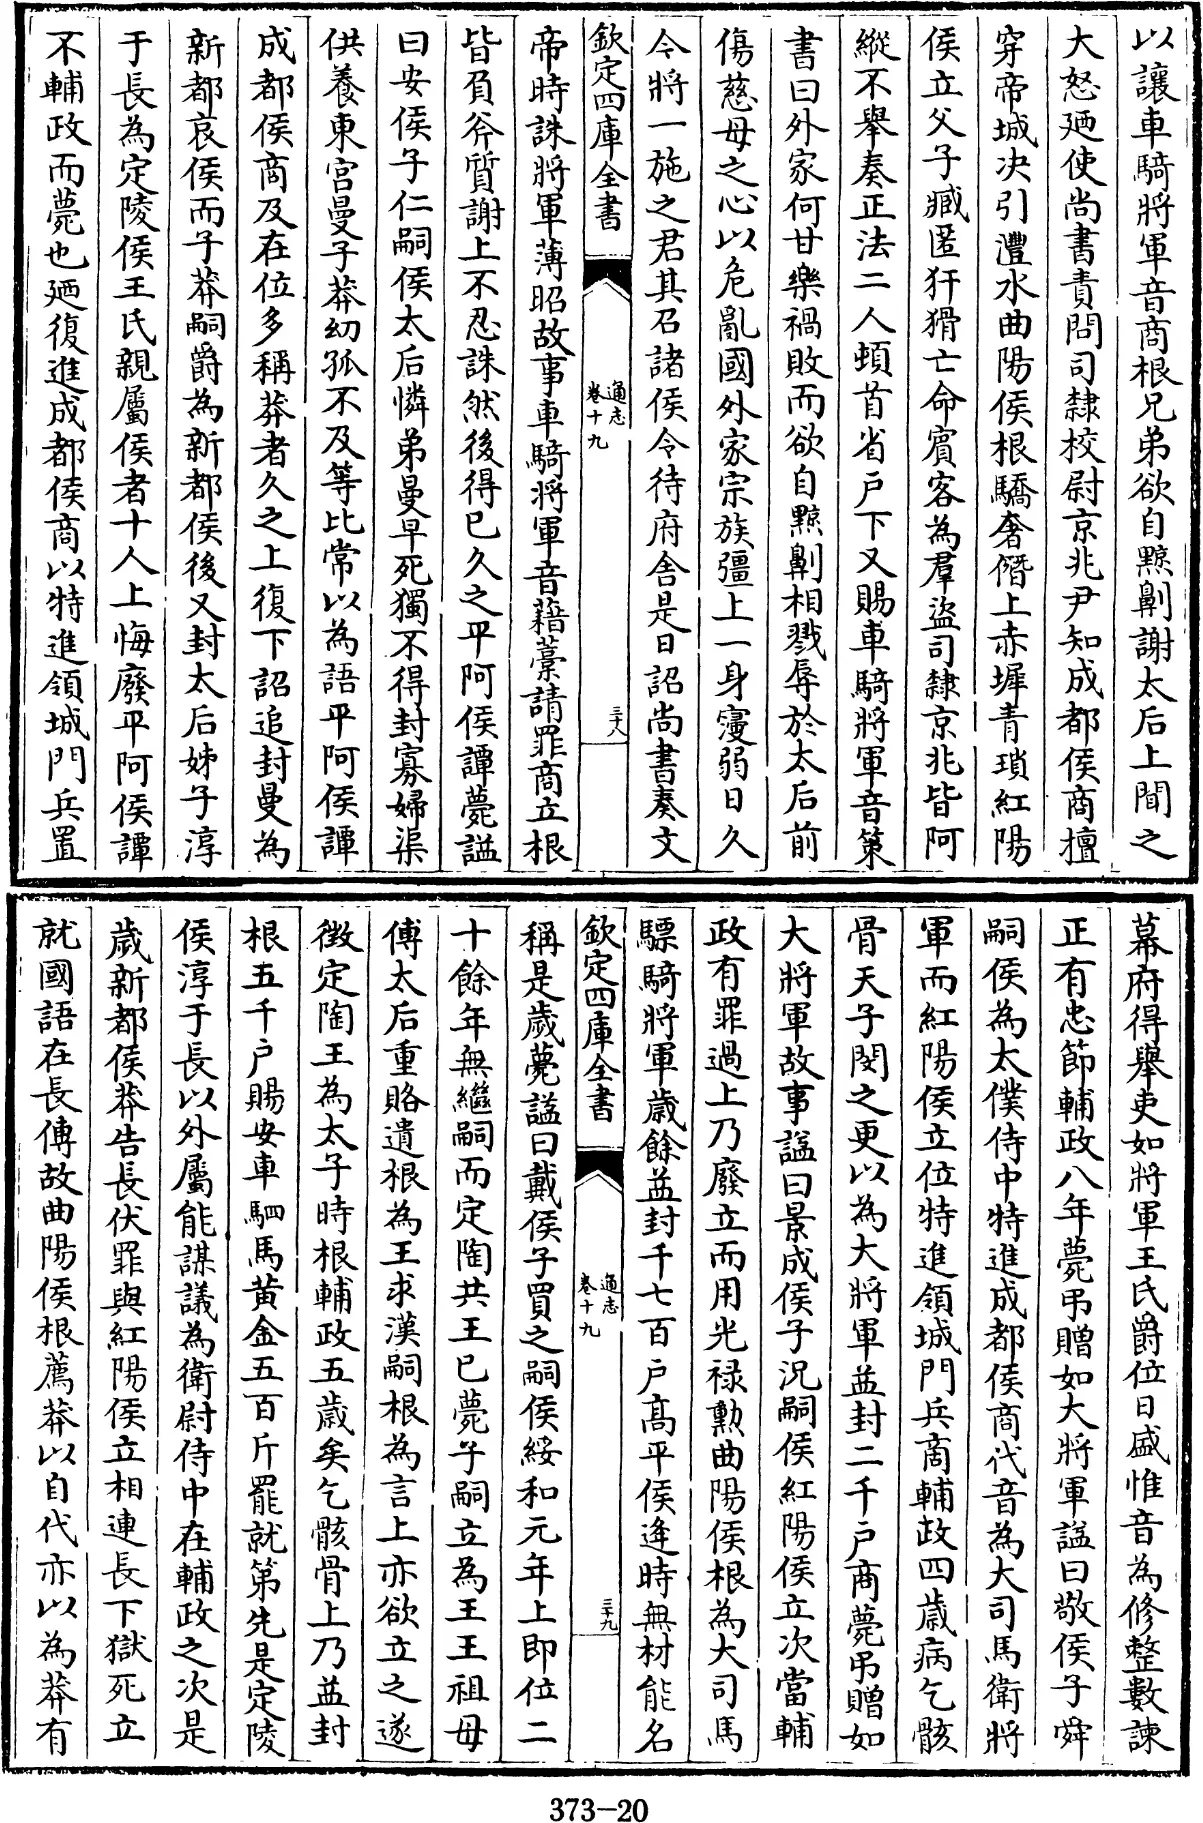 以讓車騎將軍音商根兄弟欲自黥劓謝太后上聞之
大怒廼使尚書責問司隸校尉京兆尹知成都侯商擅
穿帝城決引灃水曲陽侯根驕奢僭上赤墀青瑣紅陽
侯立父子臧匿犴猾亡命賓客為羣盜司隸京兆皆阿
縱不舉奏正法二人頓首省戶下又賜車騎將軍音策
書曰外家何甘樂禍敗而欲自黥劓相戮辱於太后前
傷慈母之心以危亂國外家宗族彊上一身寖弱日久
今將一施之君其召諸侯令待府舍是日詔尚書奏文
欽定四庫全書
通志
卷十九
三十八
帝時誅將軍薄昭故事車騎將軍音藉藁請罪商立根
皆負斧質謝上不忍誅然後得已久之平阿侯譚薨諡
曰安侯子仁嗣侯太后憐弟曼早死獨不得封寡婦渠
供養東宮曼子莽幼孤不及等比常以為語平阿侯譚
成都侯商及在位多稱莽者久之上復下詔追封曼為
新都哀侯而子莽嗣爵為新都侯後又封太后姊子淳
于長為定陵侯王氏親屬侯者十人上悔廢平阿侯譚
不輔政而薨也廼復進成都侯商以特進領城門兵置
幕府得舉吏如將軍王氏爵位日盛惟音為修整數諫
正有忠節輔政八年薨弔贈如大將軍諡曰敬侯子舜
嗣侯為太僕侍中特進成都侯商代音為大司馬衛將
軍而紅陽侯立位特進領城門兵商輔政四歲病乞骸
骨天子閔之更以為大將軍益封二千戶商薨弔贈如
大將軍故事諡曰景成侯子況嗣侯紅陽侯立次當輔
政有罪過上乃廢立而用光祿勳曲陽侯根為大司馬
驃騎將軍歲餘益封千七百戶高平侯逢時無材能名
欽定四庫全書
通志
卷十九
三十九
稱是歲薨諡曰戴侯子買之嗣侯綏和元年上即位二
十餘年無繼嗣而定陶共王已薨子嗣立為王王祖母
傅太后重賂遺根為王求漢嗣根為言上亦欲立之遂
徵定陶王為太子時根輔政五歲矣乞骸骨上乃益封
根五千戶賜安車駟馬黃金五百斤罷就第先是定陵
侯淳于長以外屬能謀議為衛尉侍中在輔政之次是
歲新都侯莽告長伏罪與紅陽侯立相連長下獄死立
就國語在長傳故曲陽侯根薦莽以自代亦以為莽有
373-20